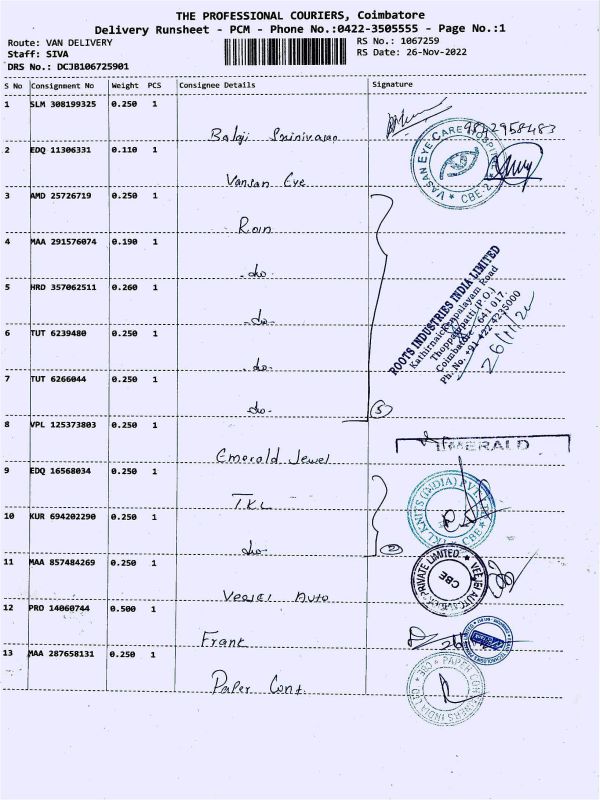 THE PROFESSIONAL COURIERS, Coimbatore
Delivery Runsheet - PCM - Phone No.:0422-3505555 - Page No.:1
Route: VAN DELIVERY
Staff: SIVA
DRS No.: DCJB106725901
RS No.: 1067259
RS Date: 26-Nov-2022
S No Consignment No Weight PCS Consignee Details Signature
1 SLM 308199325 0.250 1
Balaji Srinivasan 9842958483
2 EDQ 11306331 0.110 1
VASAN EYE CARE HOSPITAL CBE-2
Vansan Eye
3 AMD 25726719 0.250 1
Roin
4 MAA 291576074 0.190 1
-do-
5 HRD 357062511 0.260 1
-do-
6 TUT 6239480 0.250 1
-do-
7 TUT 6266044 0.250 1
do- 5
ROOTS INDUSTRIES INDIA LIMITED
Thoppampatti (P.O.)
Coimbatore - 641 017.
Ph. No. +91-422-4235000
26/11/22
8 VPL 125373803 0.250 1
Emerald Jewel EMERALD
9 EDQ 16568034 0.250 1
T.K.L
TKL KNITS (INDIA) PVT CBE
10 KUR 694202290 0.250 1
do- 2
11 MAA 857484269 0.250 1
Veejei Auto
PRIVATE LIMITED CBE
12 PRO 14060744 0.500 1
Frank
13 MAA 287658131 0.250 1
Paper Cont.
PAPER CONTAINERS INDIA CBE